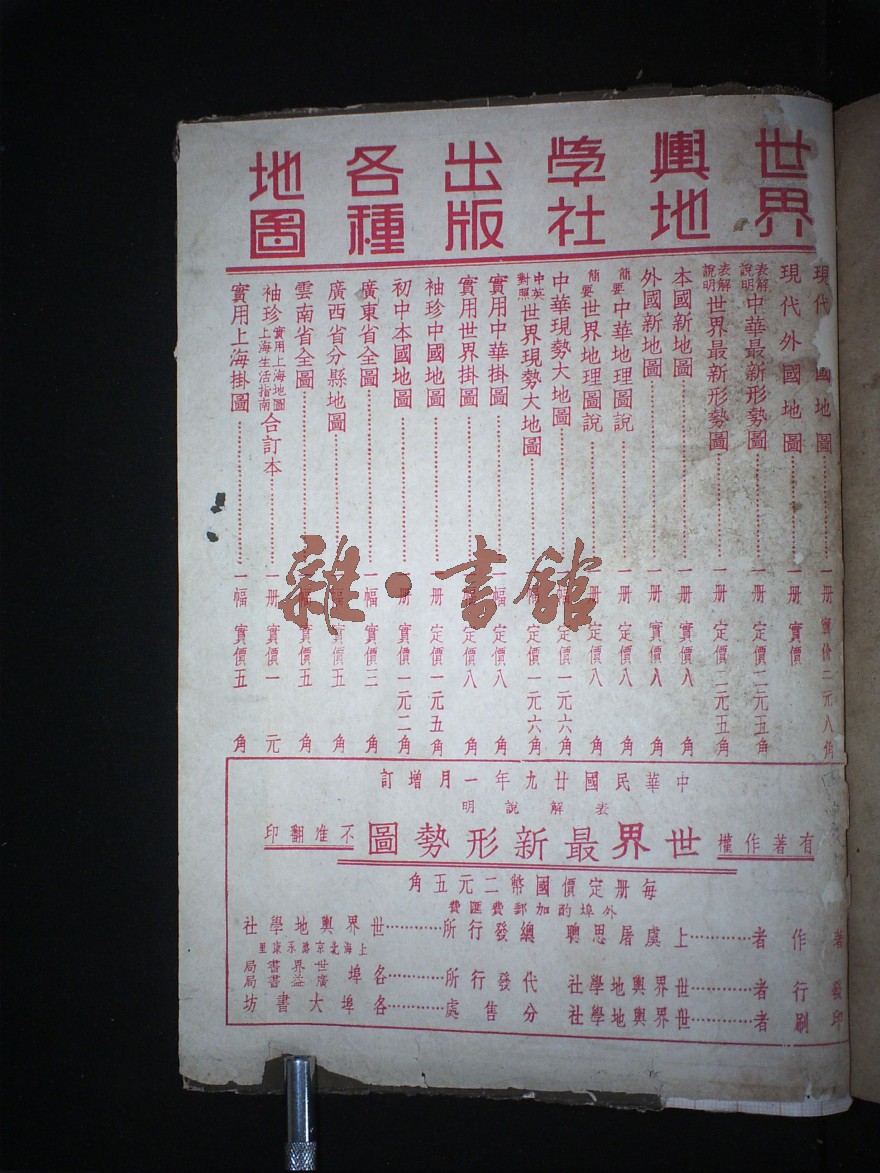 世界輿地學社出版各種地圖
現代 國地圖 一册 實價二元八角
現代外國地圖 一册 實價
表解說明 中華最新形勢圖 一册 定價二元五角
表解說明 世界最新形勢圖 一册 定價二元五角
本國新地圖 一册 實價八角
外國新地圖 一册 實價八角
簡要 中華地理圖說 一册 定價八角
簡要 世界地理圖說 一册 定價八角
中華現勢大地圖 一幅 定價一元六角
中英對照 世界現勢大地圖 幅 定價一元六角
實用中華掛圖 一幅 定價八角
實用世界掛圖 幅 定價八角
袖珍中國地圖 册 定價一元五角
初中本國地圖 册 實價一元二角
廣東省全圖 一幅 實價三角
廣西省分縣地圖 幅 實價五角
雲南省全圖 幅 實價五角
袖珍 實用上海地圖 上海生活指南 合訂本 一册 實價一元
實用上海掛圖 一幅 實價五角
雜·書館
中華民國廿九年一月增訂
表解說明
有著作權 世界最新形勢圖 不准翻印
每册定價國幣二元五角
外埠酌加郵費匯費
著作者 上虞屠思聰
發行者 世界輿地學社
印刷者 世界輿地學社
總發行所 世界輿地學社
上海北京路永康里
代發行所 各埠 世界書局 廣益書局
分售處 各埠大書坊